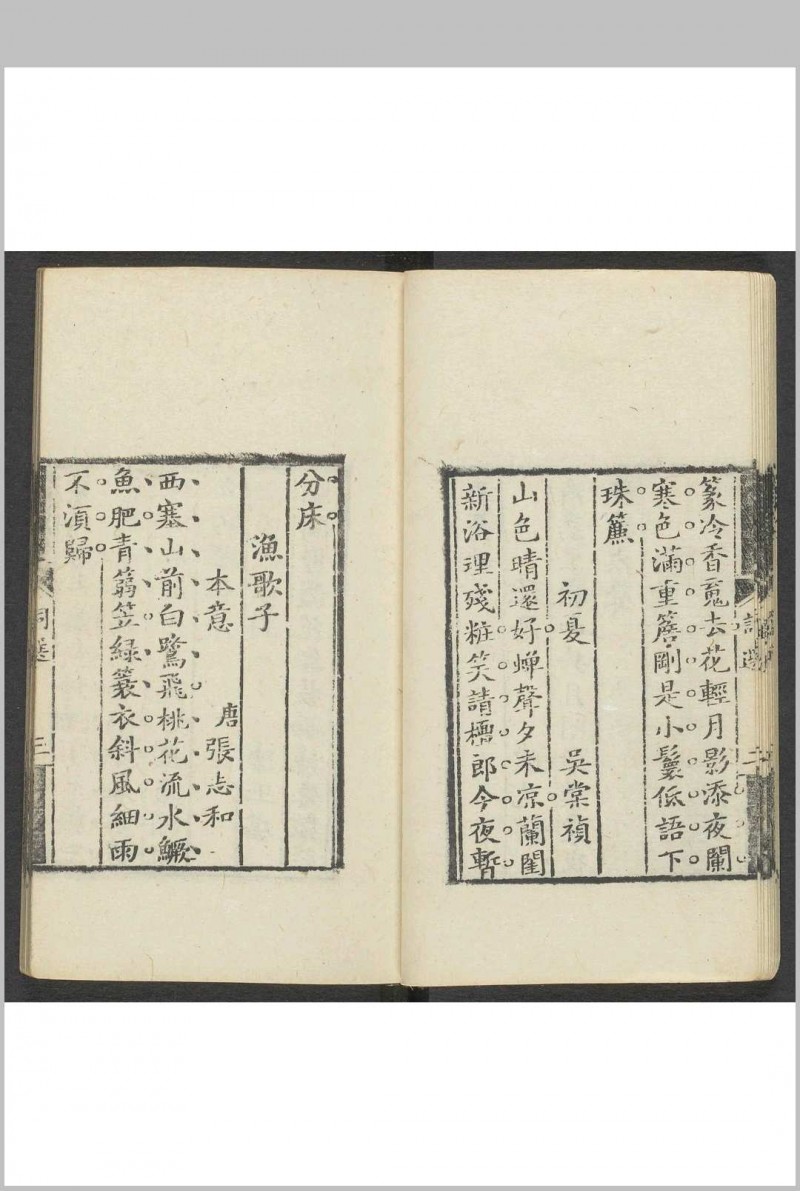 篆冷香䰟去花輕月影添夜闌
寒色滿重簷剛是小鬟低語下
珠簾
初夏　吳棠禎
山色晴還好蟬聲夕未凉蘭閨
新浴理殘粧笑請檀郎今夜暫
分床
漁歌子
本意　唐張志和
西塞山前白鷺飛桃花流水鱖
魚肥青篛笠綠簑衣斜風細雨
不湏歸
三